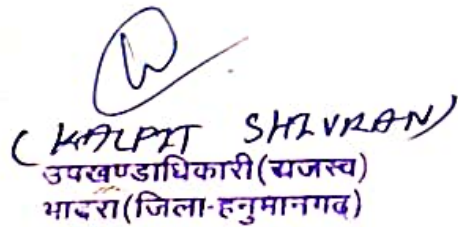 (KALPIT SHIVRAN)
उपखण्डाधिकारी(राजस्व)
भादरा(जिला-हनुमानगढ़)